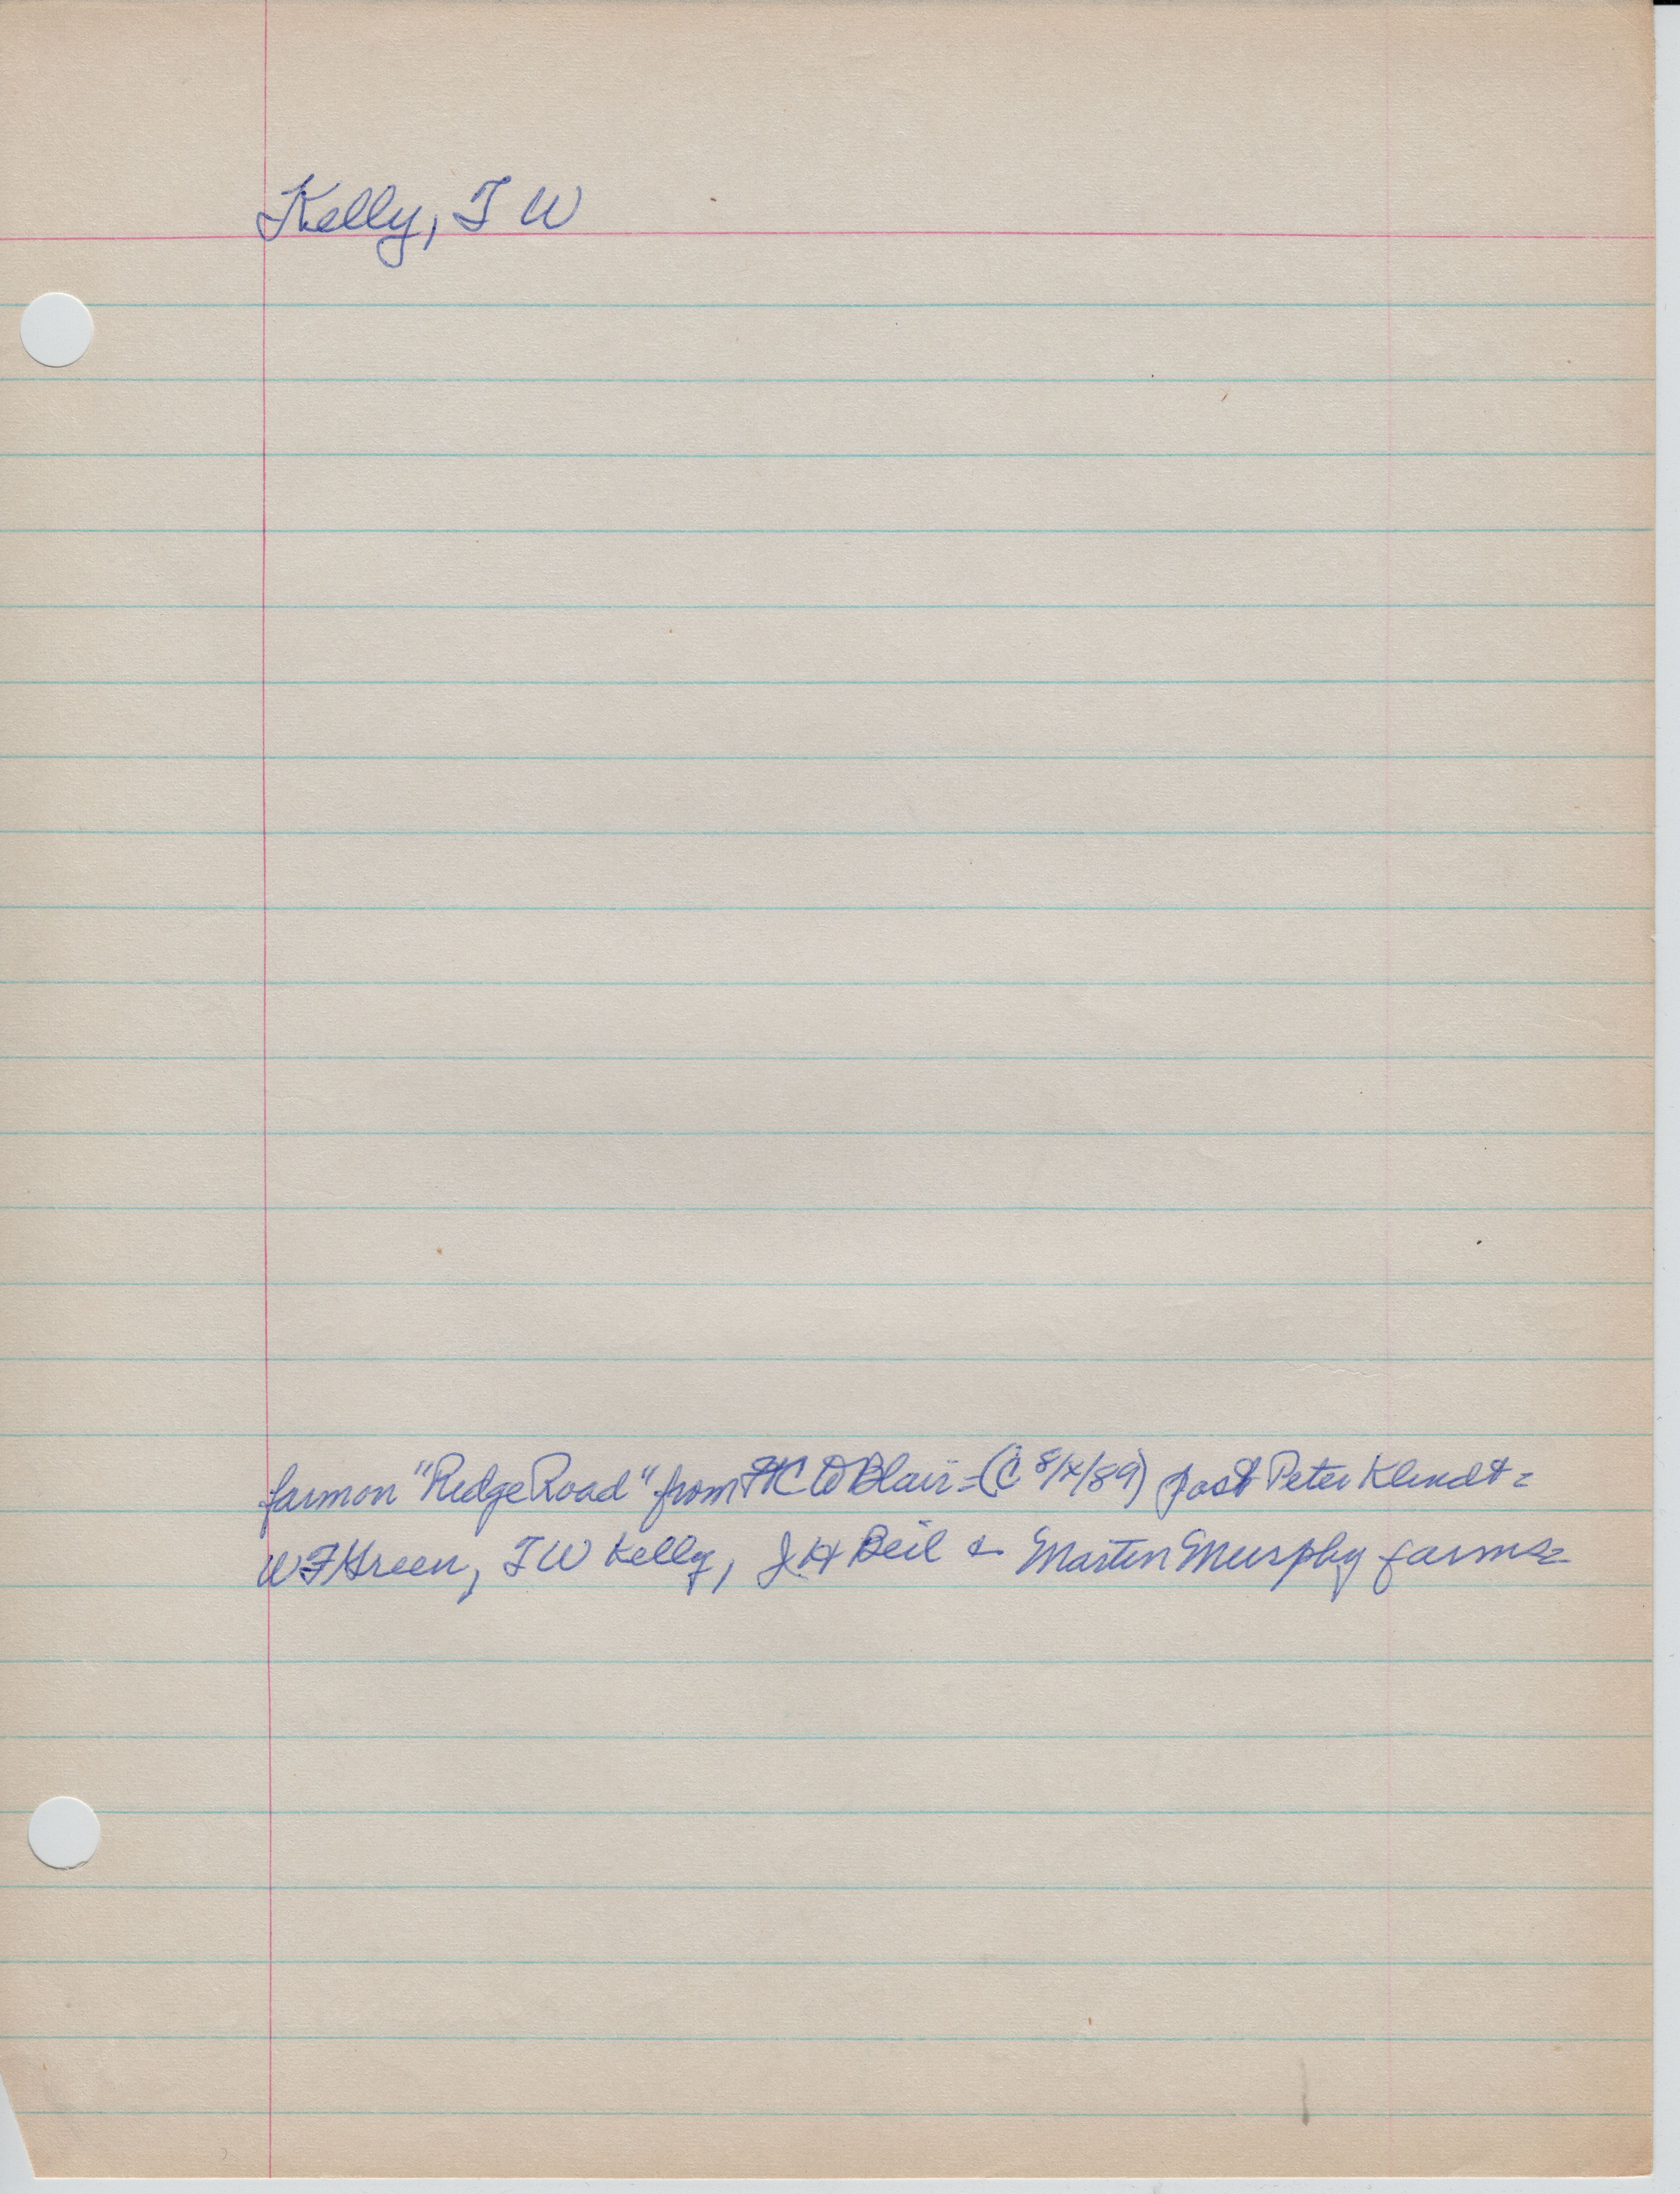 Kelly, T W
farm on "Ridge Road" from W Blair - (C 8/4/89) past Peter Klendt =
W F Green, T W Kelly, J. H Beil & Martin Murphy farms =